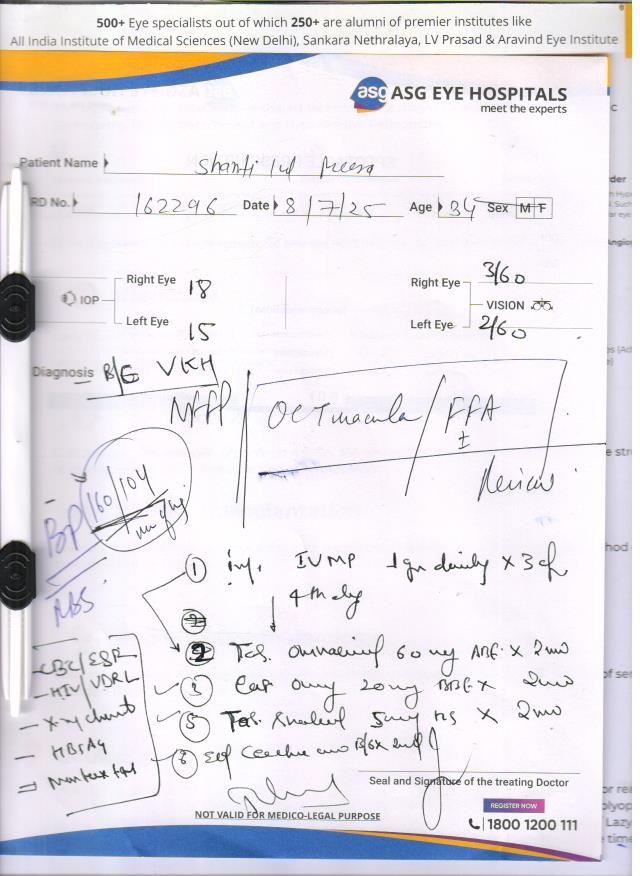 500+ Eye specialists out of which 250+ are alumni of premier institutes like
All India Institute of Medical Sciences (New Delhi), Sankara Nethralaya, LV Prasad & Aravind Eye Institute
asg ASG EYE HOSPITALS
meet the experts
Patient Name Shanti
RD No. 162296 Date 8/7/25 Age 34 Sex M F
IOP
Right Eye 18
Left Eye 15
VISION
Right Eye 3/60
Left Eye 2/60
Diagnosis B/E VKH
OCT macula / FFA
±
Review
BP 160/104
RBS
1 inj. IVMP 1gm daily x 3
4th day
2 Tab. 60 mg x 2mo
3 Cap 20mg BBF x 2mo
5 Tab. 5mg HS x 2mo
6 E/d
CBC/ESR
- HIV/VDRL
- X-ray chest
- HBsAg
- Mantoux test
Seal and Signature of the treating Doctor
NOT VALID FOR MEDICO-LEGAL PURPOSE
REGISTER NOW
1800 1200 111